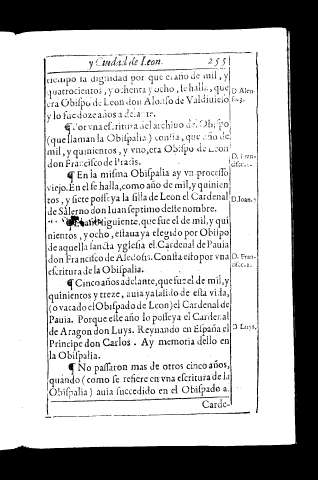 y Ciudad de Leon. 255
tiempo la dignidad por que el año de mil, y
quatrocientos, y ochenta y ocho, se halla, que
era Obispo de Leon don Alonso de Valdiuieio
y lo fue doze años adelante.
¶ Por vna escritura del archiuo del Obispo
(que llaman la Obispalia) consta, que año de
mil, y quinientos, y vno, era Obispo de Leon
don Francisco de Pratis.
¶ En la misma Obispalia ay vn processo
viejo. En el se halla, como año de mil, y quinien
tos, y siete posseya la silla de Leon el Cardenal
de Salerno don Iuan septimo deste nombre.
siguiente, que fue el de mil, y qui
nientos, y ocho, estaua ya elegido por Obispo
de aquella sancta yglesia el Cardenal de Pauia
don Francisco de Aledosis. Consta esto por vna
escritura de la Obispalia.
¶ Cinco años adelante, que fue el de mil, y
quinientos y treze, auia ya salido de esta vida,
(o vacado el Obispado de Leon) el Cardenal de
Pauia. Porque este año lo posseya el Cardenal
de Aragon don Luys. Reynando en España el
Principe don Carlos. Ay memoria dello en
la Obispalia.
¶ No passaron mas de otros cinco años,
quando (como se refiere en vna escritura de la
Obispalia) auia succedido en el Obispado a
Carde-
D. Alon
D. Fran-
D. Ioan.
D. Fran-
D. Luys.